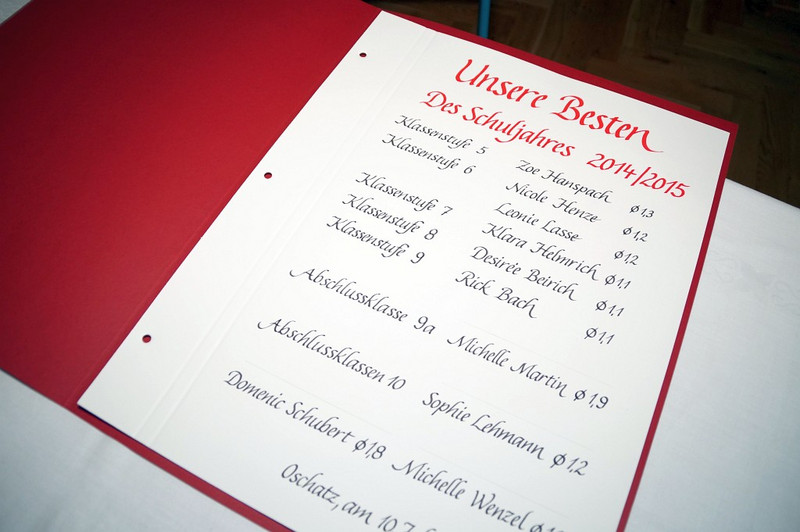 Unsere Besten
Des Schuljahres 2014/2015
Klassenstufe 5 Zoe Hanspach ø 1,3
Klassenstufe 6 Nicole Henze ø 1,2
Leonie Lasse ø 1,2
Klassenstufe 7 Klara Helmrich ø 1,1
Klassenstufe 8 Desirée Beirich ø 1,1
Klassenstufe 9 Rick Bach ø 1,1
Abschlussklasse 9a Michelle Martin ø 1,9
Abschlussklassen 10 Sophie Lehmann ø 1,2
Domenic Schubert ø 1,8 Michelle Wenzel ø
Oschatz, am 10.7.